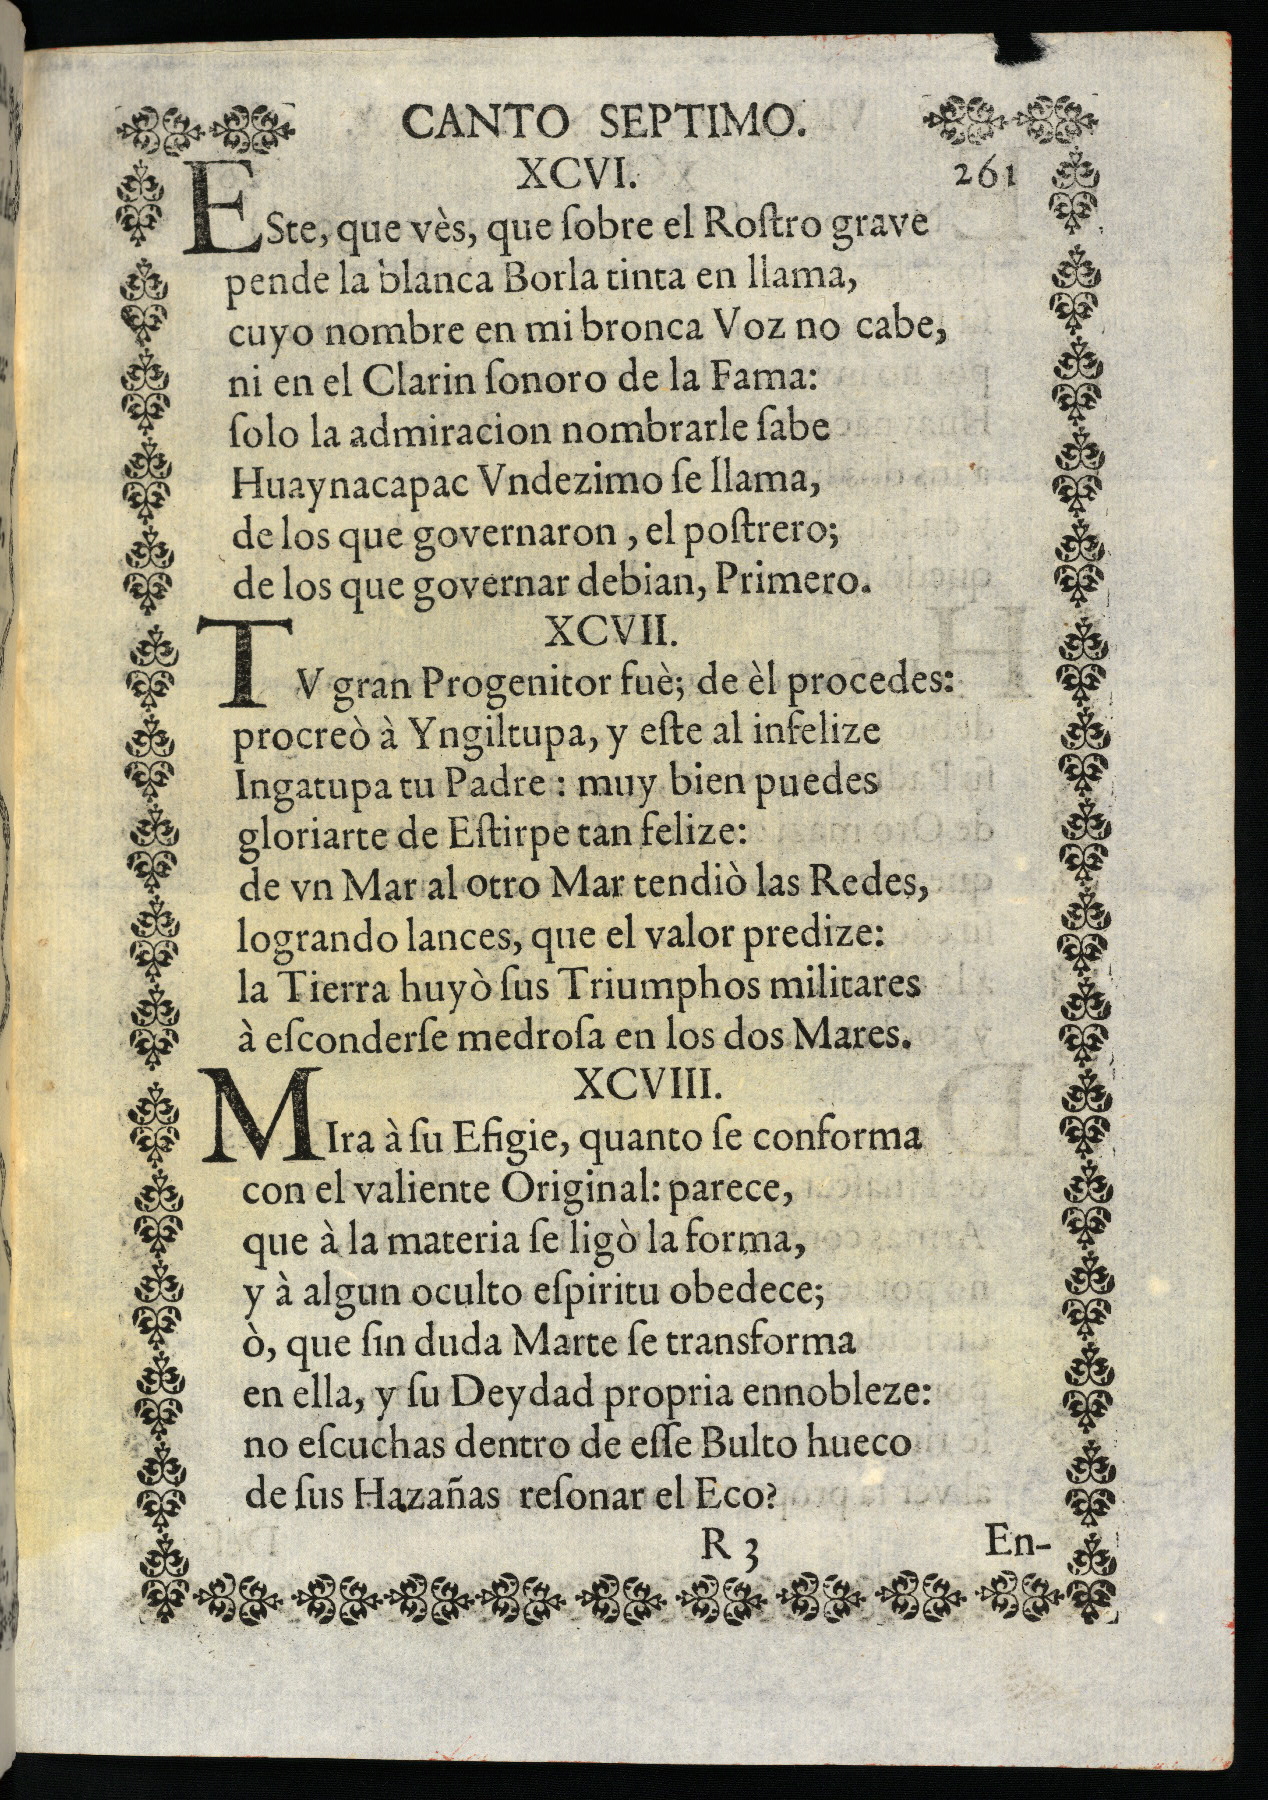 CANTO SEPTIMO.
XCVI. 261
ESte, que vès, que ſobre el Roſtro grave
pende la blanca Borla tinta en llama,
cuyo nombre en mi bronca Voz no cabe,
ni en el Clarin ſonoro de la Fama:
ſolo la admiracion nombrarle ſabe
Huaynacapac Vndezimo ſe llama,
de los que governaron, el poſtrero;
de los que governar debian, Primero.
XCVII.
TV gran Progenitor fuè; de èl procedes:
procreò à Yngiltupa, y eſte al infelize
Ingatupa tu Padre: muy bien puedes
gloriarte de Eſtirpe tan felize:
de vn Mar al otro Mar tendiò las Redes,
logrando lances, que el valor predize:
la Tierra huyò ſus Triumphos militares
à eſconderſe medroſa en los dos Mares.
XCVIII.
MIra à ſu Efigie, quanto ſe conforma
con el valiente Original: parece,
que à la materia ſe ligò la forma,
y à algun oculto eſpiritu obedece;
ò, que ſin duda Marte ſe transforma
en ella, y ſu Deydad propria ennobleze:
no eſcuchas dentro de eſſe Bulto hueco
de ſus Hazañas reſonar el Eco?
R 3 En-